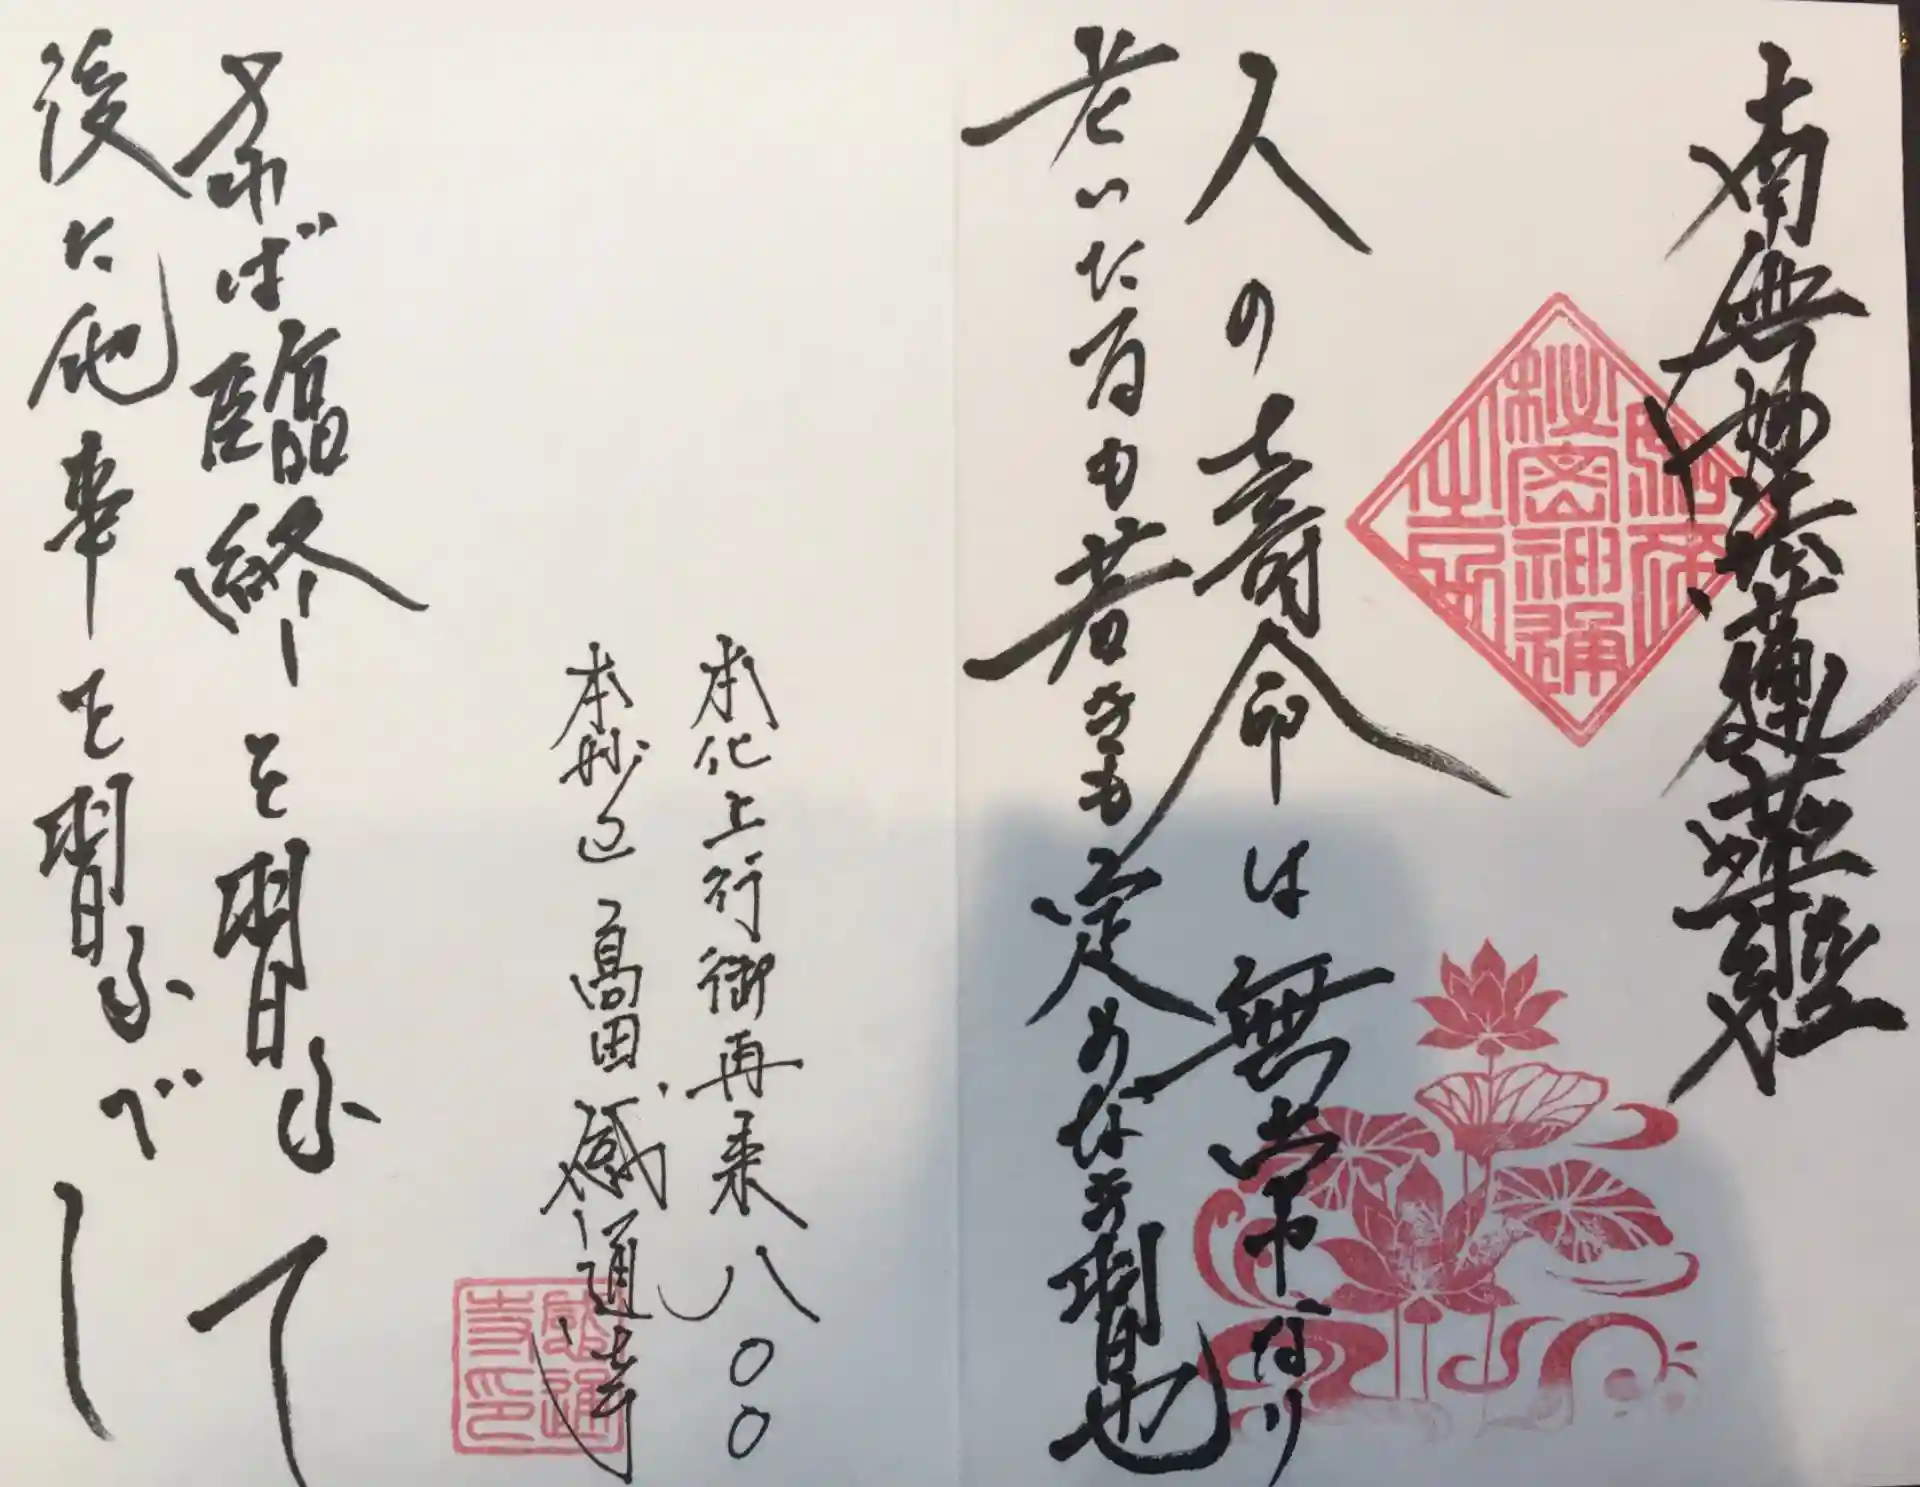 南無妙法蓮華經
如来秘密神通之力
人の壽命は無常なり
老いたるも若きも定めなき習也
本化上行御再来八〇〇
本妙山 高田 感通寺
感通寺印
ば臨終を習ふて
後に他事を習ふべし